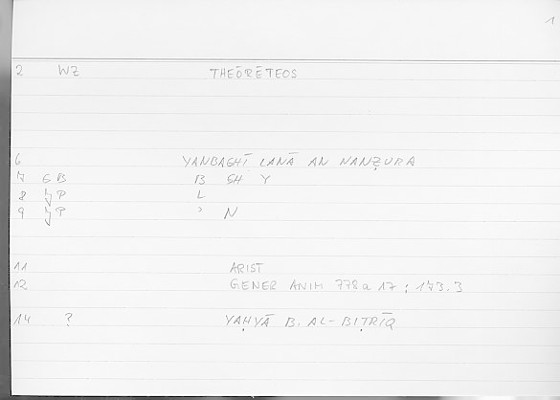 1
2 WZ THEŌRĒTEOS
6 YANBAGHĪ LANĀ AN NANẒURA
7 GB B GH Y
8 IJP L
9 IJP ʾ N
11 ARIST
12 GENER ANIM 778a 17 ; 173.3
14 ? YAḤYĀ B. AL-BIṬRĪQ